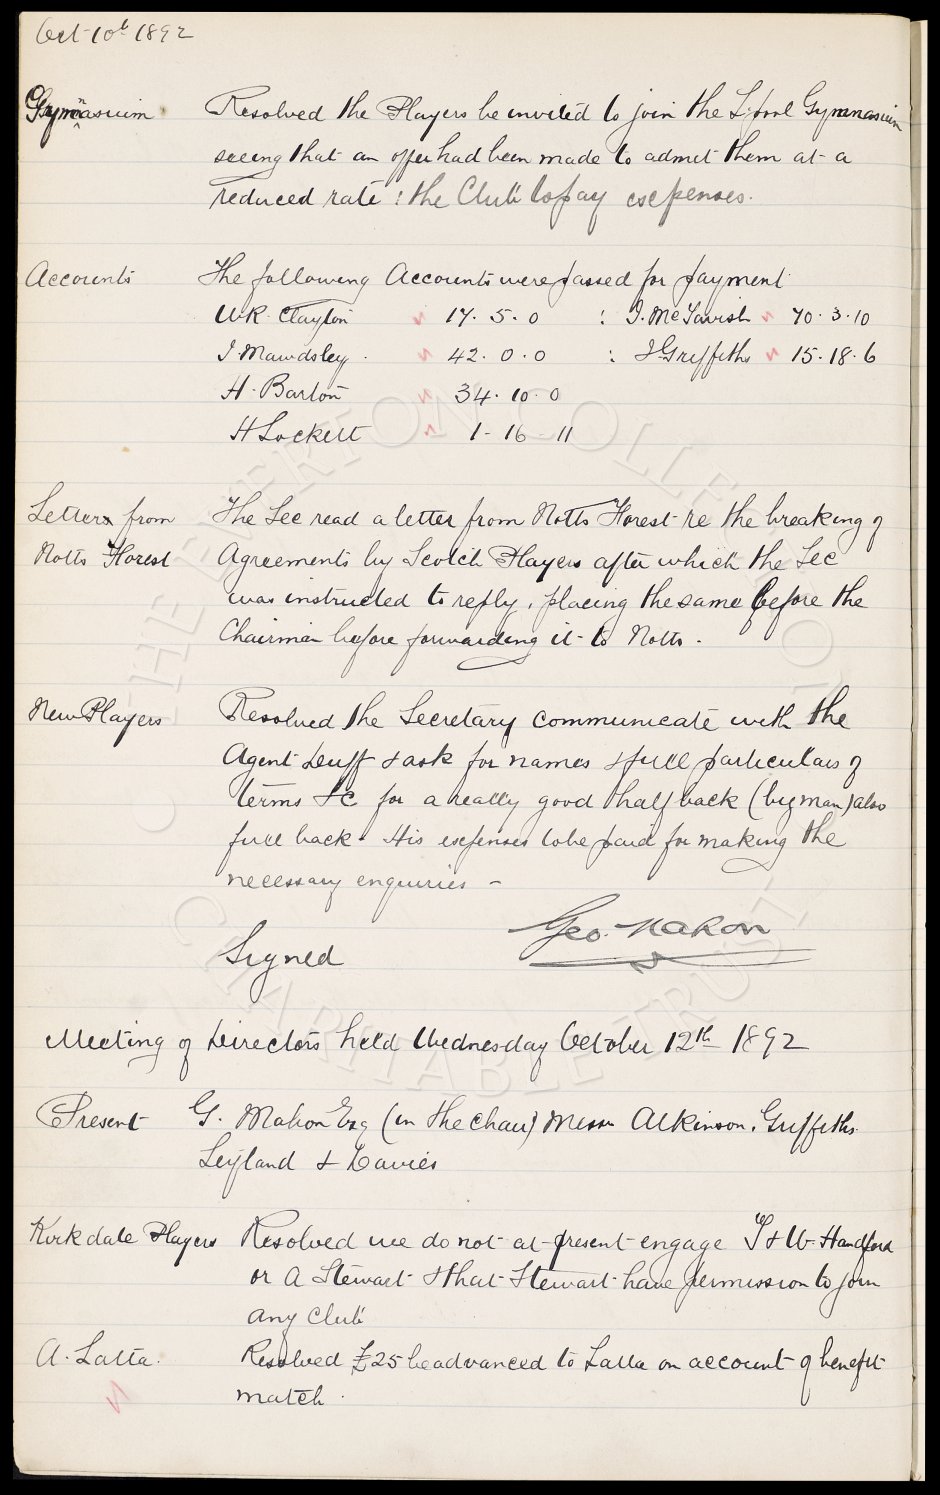 Oct 10th 1892
Gymnasium Resolved the Players be invited to join the L'pool Gymnasium
seeing that an offer had been made to admit them at a
reduced rate : the Club to pay expenses.
Accounts The following Accounts were passed for payment
W.R. Clayton 17. 5. 0 : J. McTavish 70. 3. 10
J Mawdsley 42. 0. 0 : J Griffiths 15. 18. 6
H. Barton 34. 10. 0
H Lockett 1- 16 - 11
Letter from The Sec read a letter from Notts Forest re the breaking of
Notts Forest Agreements by Scotch Players after which the Sec
was instructed to reply, placing the same before the
Chairman before forwarding it to Notts.
New Players Resolved the Secretary communicate with the
Agent Duff & ask for names & full particulars of
terms &c for a really good half back (big man) also
full back. His expenses to be paid for making the
necessary enquiries -
Signed Geo. Mahon
Meeting of Directors held Wednesday October 12th 1892
Present G. Mahon Esq (in the chair) Messrs Atkinson, Griffiths.
Leyland & Davies
Kirkdale Players Resolved we do not at present engage T & W. Handford
or A Stewart & that Stewart have permission to join
any club
A. Latta. Resolved £25 be advanced to Latta on account of benefit
match.
THE EVERTON COLLECTION
CHARITABLE TRUST